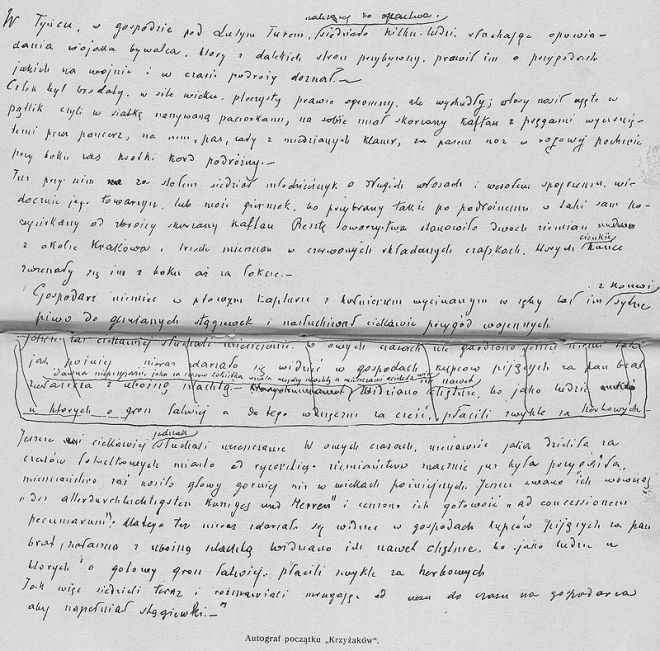 należącej do opactwa.
W Tyńcu, w gospodzie pod Lutym Turem, siedziało kilku ludzi, słuchając opowia-
dania wojaka bywalca, który z dalekich stron przybywszy, prawił im o przygodach
jakich na wojnie i w czasie podróży doznał.—
Człek był brodaty, w sile wieku, pleczysty prawie ogromny, ale wychudły; włosy nosił ujęte w
pątlik czyli w siatkę naszywaną paciorkami, na sobie miał skórzany kaftan z pręgami wyciśnię-
temi przez pancerz, na nim pas, cały z miedzianych klamr, za pasem nóż w rogowej pochwie
przy boku zaś krótki kord podróżny.—
Tuż przy nim za stołem siedział młodzieńczyk o długich włosach i wesołem spojrzeniu, wi-
docznie jego towarzysz, lub może giermek, bo przybrany także po podróżnemu w taki sam po-
wyciskany od zbroicy skórzany kaftan. Resztę towarzystwa stanowiło dwóch ziemian
z okolic Krakowa i trzech mieszczan w czerwonych składanych czapkach, których cienkie końce
zwieszały się im z boku aż na łokcie.—
Gospodarz niemiec w płowym kapturze z kołnierzem wycinanym w zęby lał im z konwi sytne
piwo do glinianych stągiewek i nasłuchiwał ciekawie przygód wojennych.
ciekawiej słuchali mieszczanie. W owych czasach nie
jak później nieraz zdarzało się widzieć w gospodach kupców pijących za pan brat
nawet
zwłaszcza z uboższą szlachtą.— Widziano chętnie, bo jako ludzie
u których o grosz łatwiej a do tego wdzięczni za cześć, płacili zwykle za herbowych.—
Jeszcze ciekawiej jednak słuchali mieszczanie. W owych czasach, nienawiść jaka dzieliła za
czasów Łokietkowych miasto od rycerskiego ziemiaństwa znacznie już była przygasła,
mieszczaństwo zaś nosiło głowy górniej niż w wiekach późniejszych. Jeszcze zwano ich wówczas
„des allerdurchluchtigsten Kuniges und Herren" i ceniono ich gotowość „ad concessionem
pecuniarum". Dlatego też nieraz zdarzało się widzieć w gospodach kupców pijących za pan
brat, zwłaszcza z uboższą szlachtą. Widziano ich nawet chętnie, bo jako ludzie u
których o gotowy grosz łatwiej, płacili zwykle za herbowych
Tak więc siedzieli teraz i rozmawiali mrugając od czasu do czasu na gospodarza
aby napełniał stągiewki.—
Autograf początku „Krzyżaków".